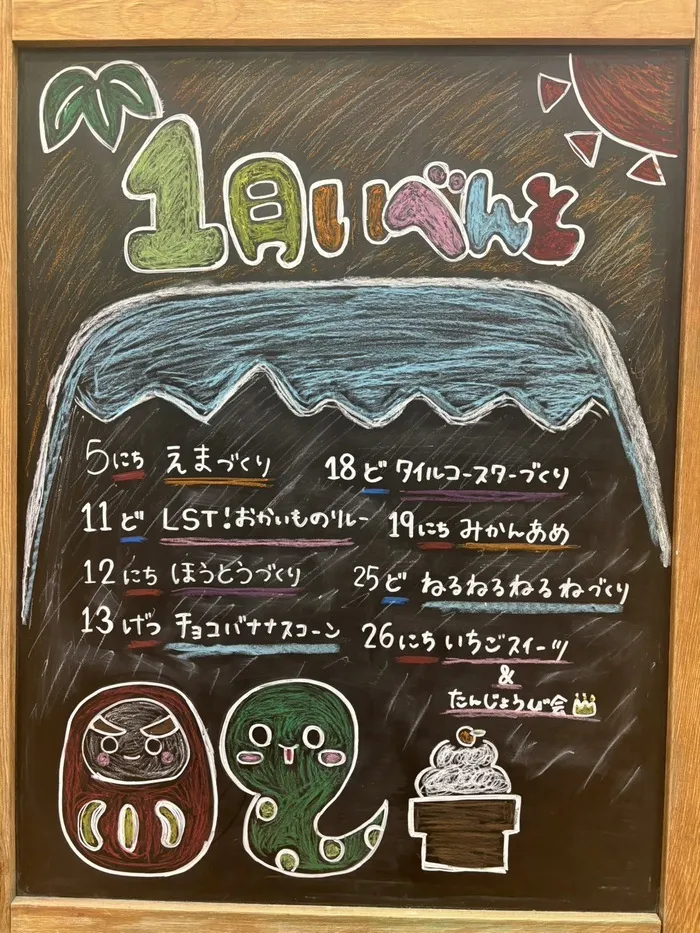 1月いべんと
5にち えまづくり
11ど LST!おかいものリレー
12にち ほうとうづくり
13げつ チョコバナナスコーン
18ど タイルコースターづくり
19にち みかんあめ
25ど ねるねるねるねづくり
26にち いちごスイーツ
&
たんじょうび会